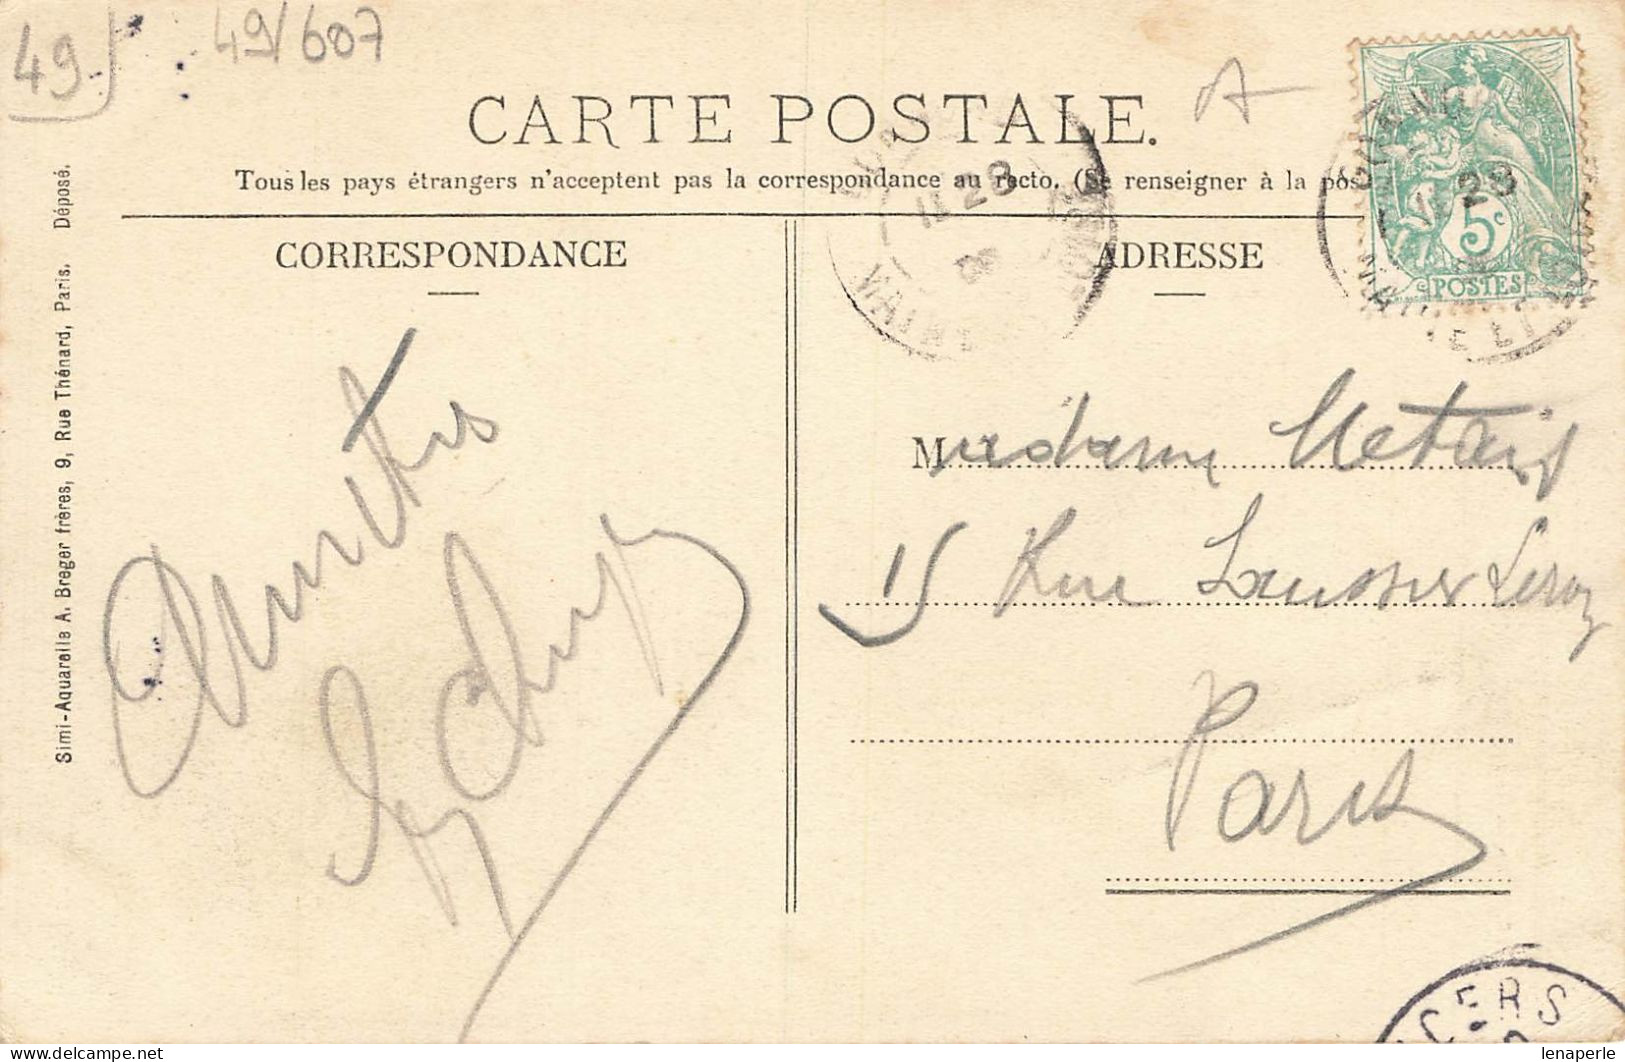 49
49/607
A
CARTE POSTALE.
Tous les pays étrangers n'acceptent pas la correspondance au recto. (Se renseigner à la pos
CORRESPONDANCE
ADRESSE
5c
POSTES
28
MAINE
28
Amitiés
Madame Métais
15 Rue Saussier Leroy
Paris
Simi-Aquarelle A. Breger frères, 9, Rue Thénard, Paris. Déposé.
GERS
lenaperle